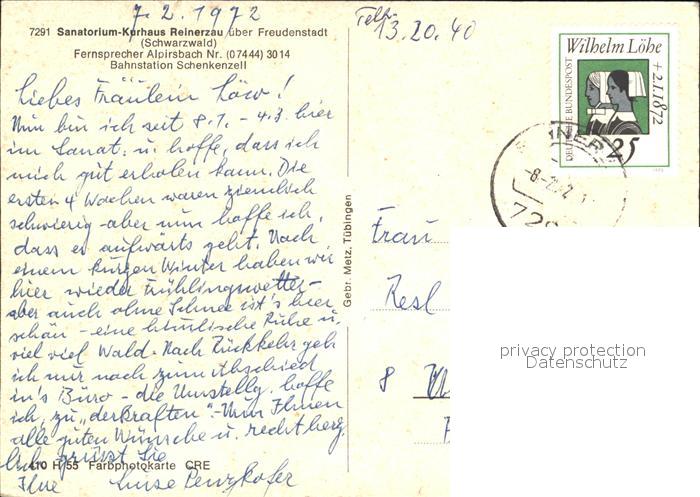 7.2.1972
7291 Sanatorium-Kurhaus Reinerzau über Freudenstadt
(Schwarzwald)
Fernsprecher Alpirsbach Nr. (07444) 3014
Bahnstation Schenkenzell
Liebes Fräulein Löw!
Nun bin ich seit 8.1. - 4.3. hier
im Sanat. u. hoffe, dass ich
mich gut erholen kann. Die
ersten 4 Wochen waren ziemlich
schwierig - aber nun hoffe ich,
dass es aufwärts geht. Nach
einem kurzen Winter haben wir
hier wieder Frühlingswetter -
aber auch ohne Schnee ist's hier
schön - eine himmlische Ruhe u.
viel viel Wald. Nach Rückkehr geh
ich nur noch zum Abschied
in's Büro - die Umstellg. hoffe
ich, zu "derkraften". - Nun Ihnen
alle guten Wünsche u. recht herz-
lich grüsst Sie
410 H 55 Farbphotokarte CRE
Ihre Luise
Gebr. Metz, Tübingen
13.20.40
Wilhelm Löhe
+ 2.1.1872
DEUTSCHE BUNDESPOST
25
-8.2.72
729
Frau
Resl
8
privacy protection
Datenschutz